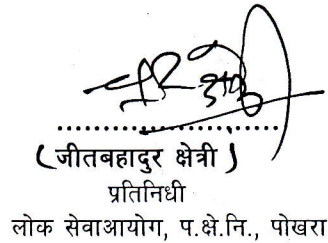 (जीतबहादुर क्षेत्री)
प्रतिनिधी
लोक सेवाआयोग, प.क्षे.नि., पोखरा